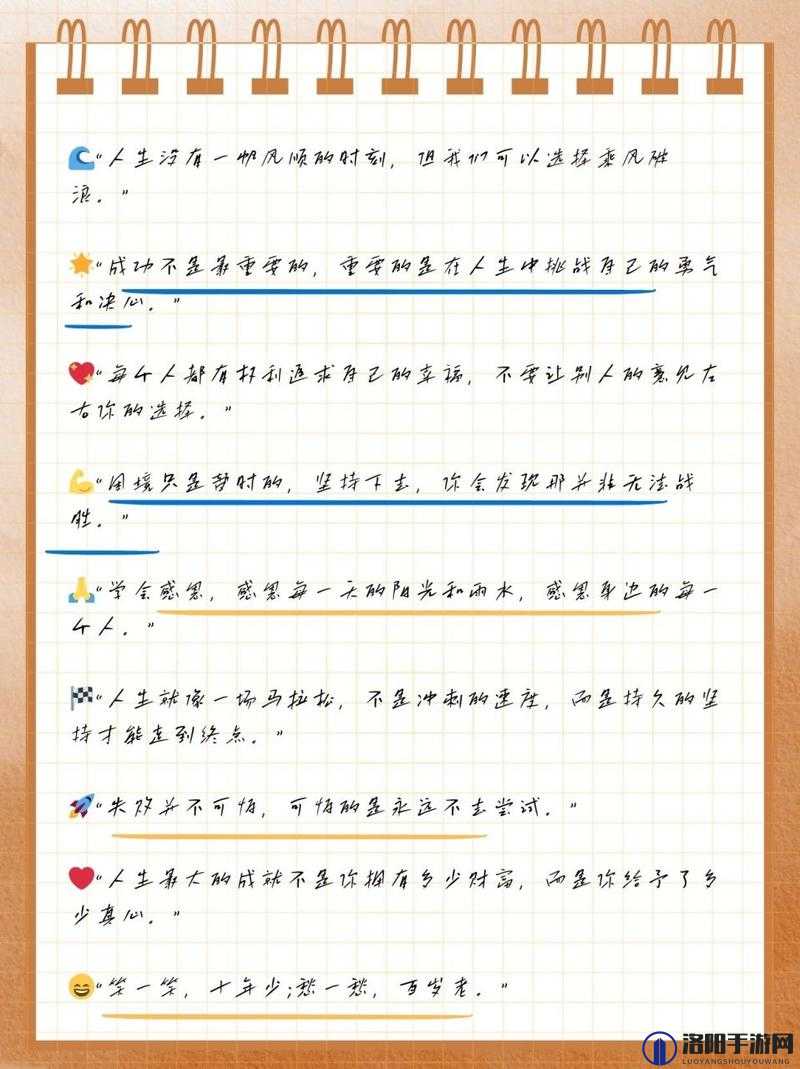 “人生没有一帆风顺的时刻，但我们可以选择乘风破
浪。”
“成功不是最重要的，重要的是在人生中挑战自己的勇气
和决心。”
“每个人都有权利追求自己的幸福，不要让别人的意见左
右你的选择。”
“困境只是暂时的，坚持下去，你会发现那并非无法战
胜。”
“学会感恩，感恩每一天的阳光和雨水，感恩身边的每一
个人。”
“人生就像一场马拉松，不是冲刺的速度，而是持久的坚
持才能走到终点。”
“失败并不可怕，可怕的是永远不去尝试。”
“人生最大的成就不是你拥有多少财富，而是你给予了多
少真心。”
“笑一笑，十年少;愁一愁，百发老。”
洛阳手游网
LUOYANGSHOUYOUWANG